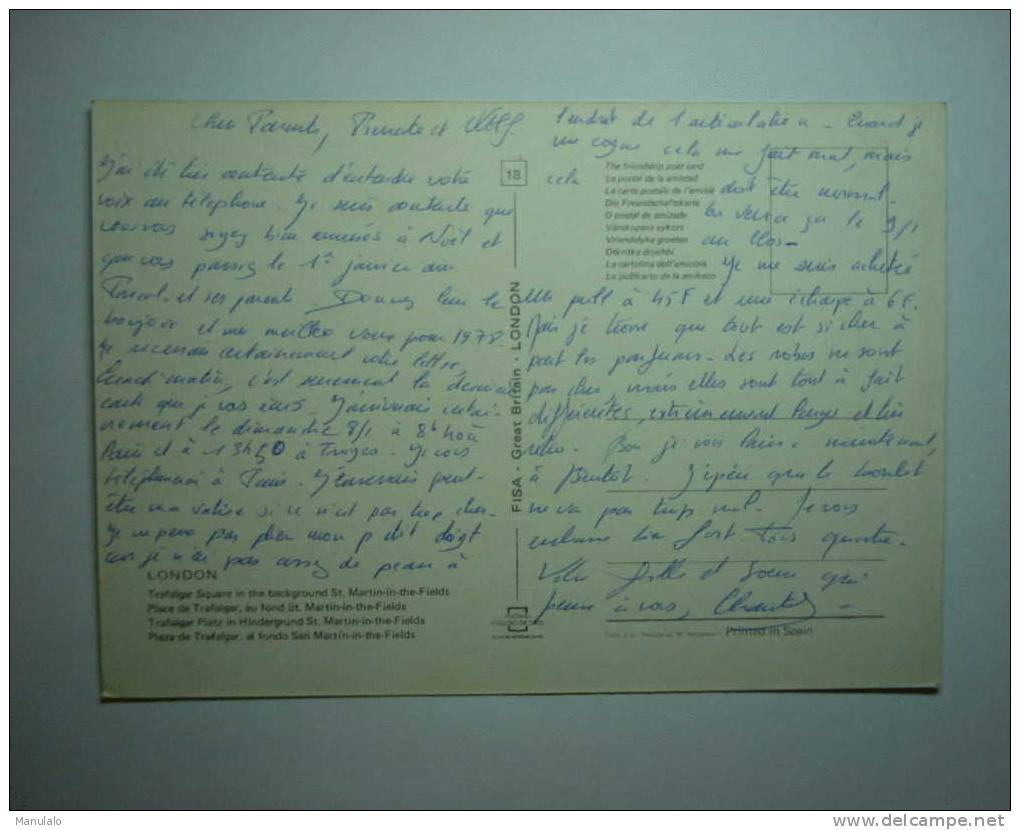 Chers Parents, et
J'ai été très contente d'entendre votre
voix au téléphone. Je suis contente que
vous vous soyez bien amusés à Noël et
que vous passiez le 1er janvier
Pascal et ses parents. Donnez leur le
bonjour et mes meilleurs vœux pour 1978.
Je recevrai certainement votre lettre
lundi matin, c'est sûrement la dernière
carte que je vous envois. J'arriverais
le dimanche 8/1 à 8h40 à
Paris et à 13h50 à Troyes. Je vous
téléphonerai à Paris. J'enverrais peut-
être ma valise si ce n'est pas trop cher.
Je ne peux pas plier mon p'tit doigt
car je n'ai pas assez de peau à
l'endroit de l'articulation. Quand je
me cogne cela me fait mal, mais
cela doit être normal.
On verra ça le 9/1
au
Je me suis acheté
un pull à 45F et une écharpe à 6F.
Mais je trouve que tout est si cher à
part les parfums. Les robes ne sont
pas cher, mais elles sont tout à fait
différentes, extrêmement larges et très
rétro. Bon je vous laisse maintenant,
à Bientôt. J'espère que le
ne va pas trop mal. Je vous
embrasse bien fort Tous quatre.
Votre fille et sœur qui
pense à vous, Chantal
18
The friendship post card
La postal de la amistad
La carte postale de l'amitié
Die Freundschaftskarte
O postal de amizade
Vänskapens vykort
Vriendelyke groeten
Otkritka druchbi
La cartolina dell'amicizia
La poŝtkarto de la amikeco
FISA - Great Britain - LONDON
LONDON
Trafalgar Square in the background St. Martin-in-the-Fields
Place de Trafalgar, au fond St. Martin-in-the-Fields
Trafalgar Platz in Hindergrund St. Martin-in-the-Fields
Plaza de Trafalgar, al fondo San Martín-in-the-Fields
Printed in Spain
Manulalo
www.delcampe.net